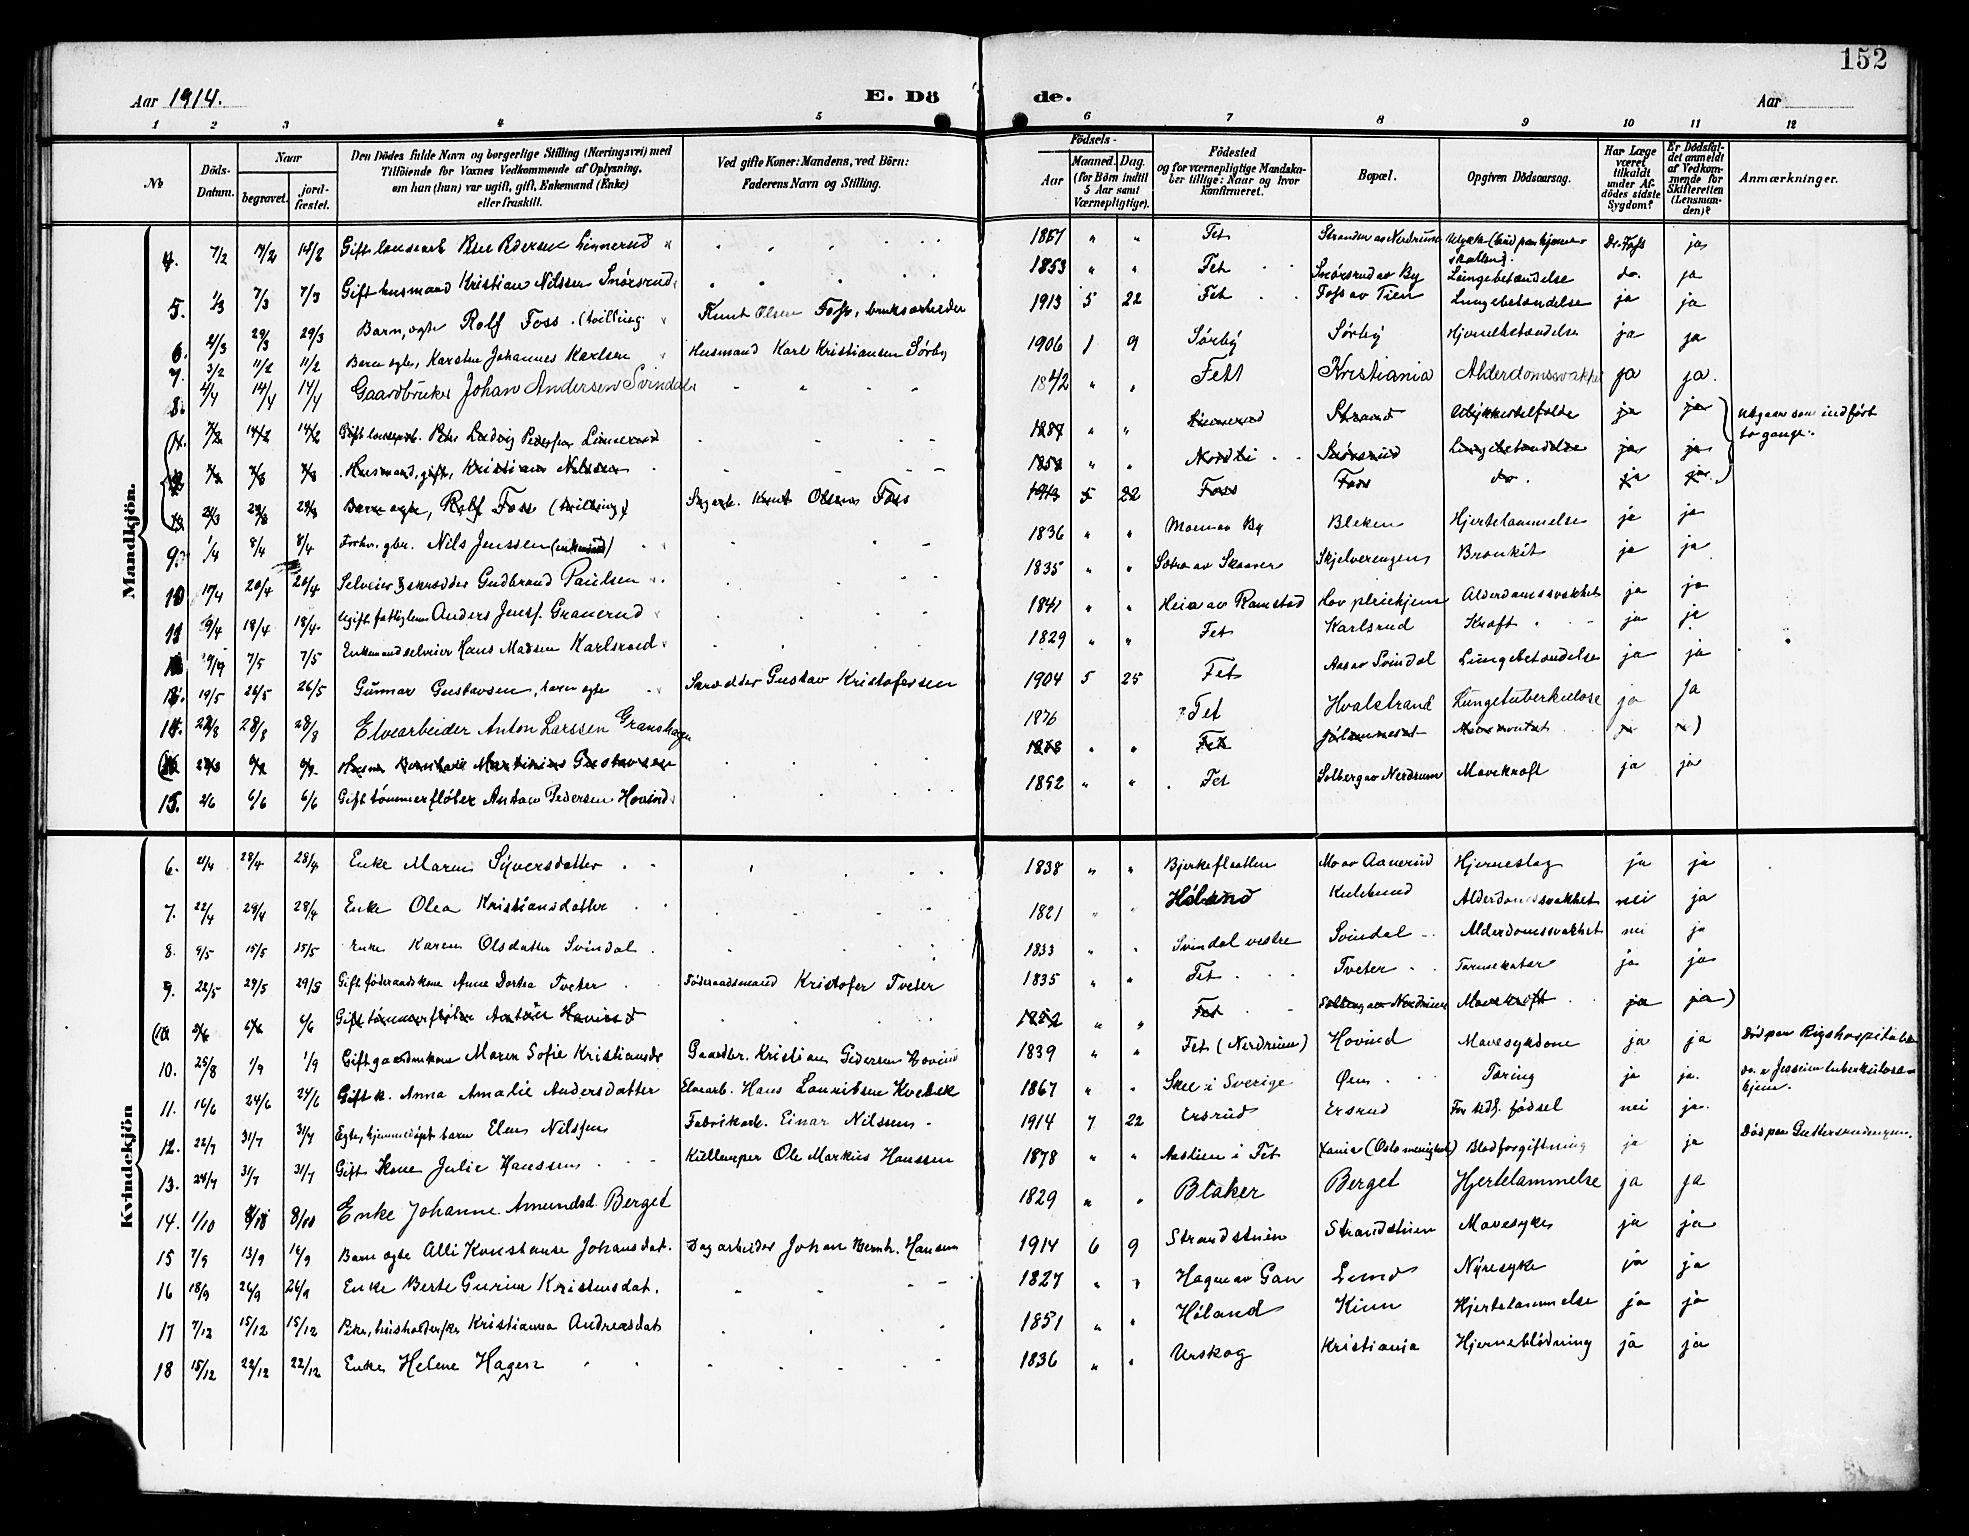 152
Aar 1914. E. Dö de. Aar
1 2 3 4 5 6 7 8 9 10 11 12
No
Döds-Datum.
Naar
begravet.
jord-fæstet.
Den Dödes fulde Navn og borgerlige Stilling (Næringsvei) med
Tilföiende for Voxnes Vedkommende af Oplysning,
om han (hun) var ugift, gift, Enkemand (Enke)
eller fraskilt.
Ved gifte Koner: Mandens, ved Börn:
Faderens Navn og Stilling.
Födsels-
Aar
Maaned. Dag.
(for Börn indtil
5 Aar samt
Værnepligtige).
Födested
og for værnepligtige Mandska-
ber tillige: Naar og hvor
konfirmeret.
Bopæl.
Opgiven Dödsaarsag.
Har Læge
været
tilkaldt
under Af-
dödes sidste
Sygdom?
Er Dödsfal-
det anmeldt
af Vedkom-
mende for
Skifteretten
(Lensman-
den)?
Anmærkninger.
Mandkjön.
4. 7/2 14/2 14/2 Gift Peder Pedersen Linnerud 1857 " " Fet Stranden av Nerdrum Dr. Foss ja
5. 1/3 7/3 7/3 Gift husmand Kristian Nilssen Snörsrud 1853 " " Fet Snörsrud av By Lungebetændelse do. ja
6. 21/3 29/3 29/3 Barn, egte Rolf Foss (tvilling) Knut Olsen Foss, bruksarbeider 1913 5 22 Fet Foss av Tien Lungebetendelse ja ja
7. 3/2 11/2 11/2 Barn egte, Karsten Johannes Karlsen Husmand Karl Kristiansen Sörby 1906 1 9 Sörby Sörby Hjernebetændelse ja ja
8. 4/4 14/4 14/4 Gaardbruker Johan Andersen Svindal 1842 " " Fett Kristiania Alderdomssvakhet ja ja.
7/2 14/2 14/2 Ludvig Pedersen Linnerud 1857 " " Linnerud Strand Ulykkestilfelde ja ja Utgaar som indfört
to gange.
Husmand, gift, Kristian Nilssen " " Nordli Snörsrud Lungebetendelse ja ja
Barn egte, Rolf Foss (tvilling) Knut Olsen Foss 1913 5 22 Foss Foss do. ja ja
9. 1/4 8/4 8/4 Forhv. gbr. Nils Jenssen (enkemand) 1836 " " Moen av By Bleken Hjertelammelse ja ja
10 17/4 20/4 20/4 Selveier & skrædder Gudbrand Paulsen 1835 " " Sætra av Skaarer Skjelverengen Bronkit ja ja
11 9/4 18/4 18/4 Ugift Anders Jensf. Granerud 1841 " " Heia av Ramstad Hov pleiehjem Alderdomssvakhet ja ja
7/5 7/5 Enkemand selveier Hans Madsen Karlsrud 1829 " " Fet Karlsrud Kræft ja ja
13. 19/5 26/5 26/5 Gunnar Gustavsen, barn egte Skrædder Gustav Kristofersen 1904 5 25 Fet Aas av Svindal Lungebetendelse ja ja
14. 22/8 28/8 28/8 Elvearbeider Anton Larssen Granshagen 1876 Fet Hvalstrand Lungetuberkulose ja ja
Martinius Gustavsen 1878 " " Fet
15. 2/6 6/6 6/6 Gift tömmerflöter Anton Pedersen Hovind 1852 " " Fet Solberg av Nerdrum Mavekræft ja ja
Kvindekjön
6. 21/4 28/4 28/4 Enke Maren Syversdatter 1838 " " Bjerkeflaatten Mo av Aanerud Hjerneslag ja ja
7. 22/4 29/4 28/4 Enke Olea Kristiansdatter 1821 " " Höland Kulsrund Alderdomssvakhet nei ja
8. 9/5 15/5 15/5 Enke Karen Olsdatter Svindal 1833 " " Svindal vestre Svindal Alderdomssvakhet nei ja
9. 22/5 29/5 29/5 Gift föderaadskone Anne Dortea Tveter Föderaadsmand Kristofer Tveter 1835 " " Fet Tveter Tarmekatar ja ja
2/6 6/6 6/6 Gift tömmerflöter Anton Hovind 1852 " " Fet Solberg av Nerdrum Mavekræft ja ja)
10. 25/8 1/9 1/9 Gift gaardmkone Maren Sofie Kristiansdr Gaardbr. Kristian Pedersen Hovind 1839 " " Fet (Nerdrum) Hovind Mavesygdom ja ja Död paa Rigshospitalet
11. 16/6 24/6 24/6 Gift k. Anna Amalie Andersdatter Elvearb. Hans Lauritsen Kvebek 1867 " " Skee i Sverige Öien Tæring ja ja. do. " Jessheim tuberkulose-
hjem.
12. 22/7 31/7 31/7 Egte, hjemmedöpt barn Elen Nilssen Fabrikarb. Einar Nilssen 1914 7 22 Ersrud Ersrud For tidl. födsel nei ja.
13. 24/7 31/7 31/7 Gift Kone Julie Hanssen Kullemper Ole Markus Hanssen 1878 " " Aaslien i Fet Xania (Oslo menighet) Blodforgiftning ja ja Död paa
14. 1/10 8/10 8/10 Enke Johanne Amundsd. Berget 1829 " " Blaker Berget Hjertelammelse ja ja
15 7/9 13/9 16/9 Barn egte Alli Konstanse Johansdat. Dagarbeider Johan Bernh. Hansen 1914 6 9 Strandstuen Strandstuen Mavesyke ja ja
16 18/9 26/9 26/9 Enke Berte Gurine Kristensdat. 1827 " " Hagen av Gan Lund Nyresyke ja ja
17 7/12 15/12 15/12 Pike, husholderske Kristianna Andreasdat 1851 " " Höland Kinn Hjertelammelse ja ja
18 15/12 22/12 22/12 Enke Helene Hagen 1836 " " Urskog Kristiania Hjerneblödning ja ja